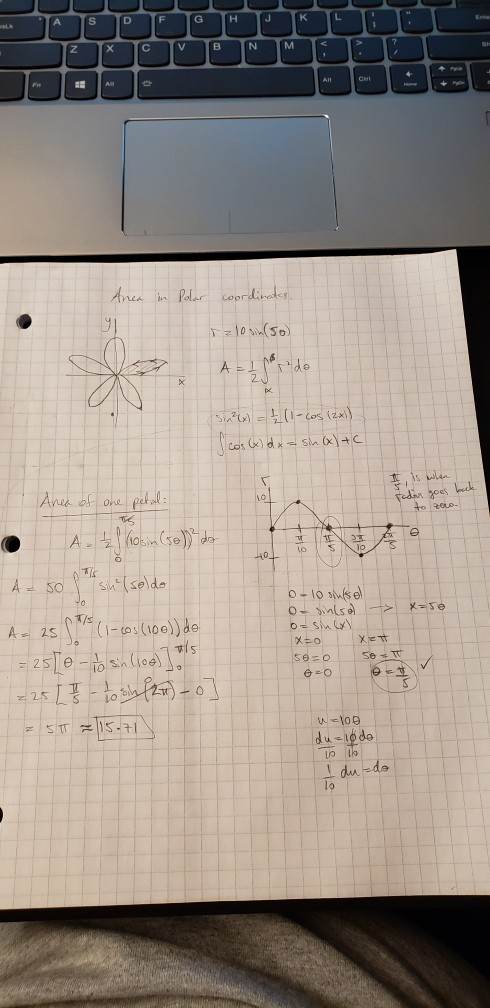 A S D F G H J K L
Z X C V B N M < , > . ? /
Fn Alt Alt Ctrl Home PgUp PgDn
Area in Polar coordinates
y
x
r = 10 sin(5θ)
A = 1/2 ∫_α^β r² dθ
sin²(x) = 1/2 (1 - cos(2x))
∫ cos(x) dx = sin(x) + C
Area of one petal:
A = 1/2 ∫_0^{π/5} (10 sin(5θ))² dθ
A = 50 ∫_0^{π/5} sin²(5θ) dθ
A = 25 ∫_0^{π/5} (1 - cos(10θ)) dθ
= 25 [θ - 1/10 sin(10θ)]_0^{π/5}
= 25 [π/5 - 1/10 sin(2π) - 0]
= 5π ≈ 15.71
r
10
-10
π/10 π/5 3π/10 2π/5 θ
π/5, is when
radius goes back
to zero.
0 = 10 sin(5θ)
0 = sin(5θ) → x = 5θ
0 = sin(x)
x = 0 x = π
5θ = 0 5θ = π
θ = 0 θ = π/5 ✓
u = 10θ
du/10 = 10dθ/10
1/10 du = dθ